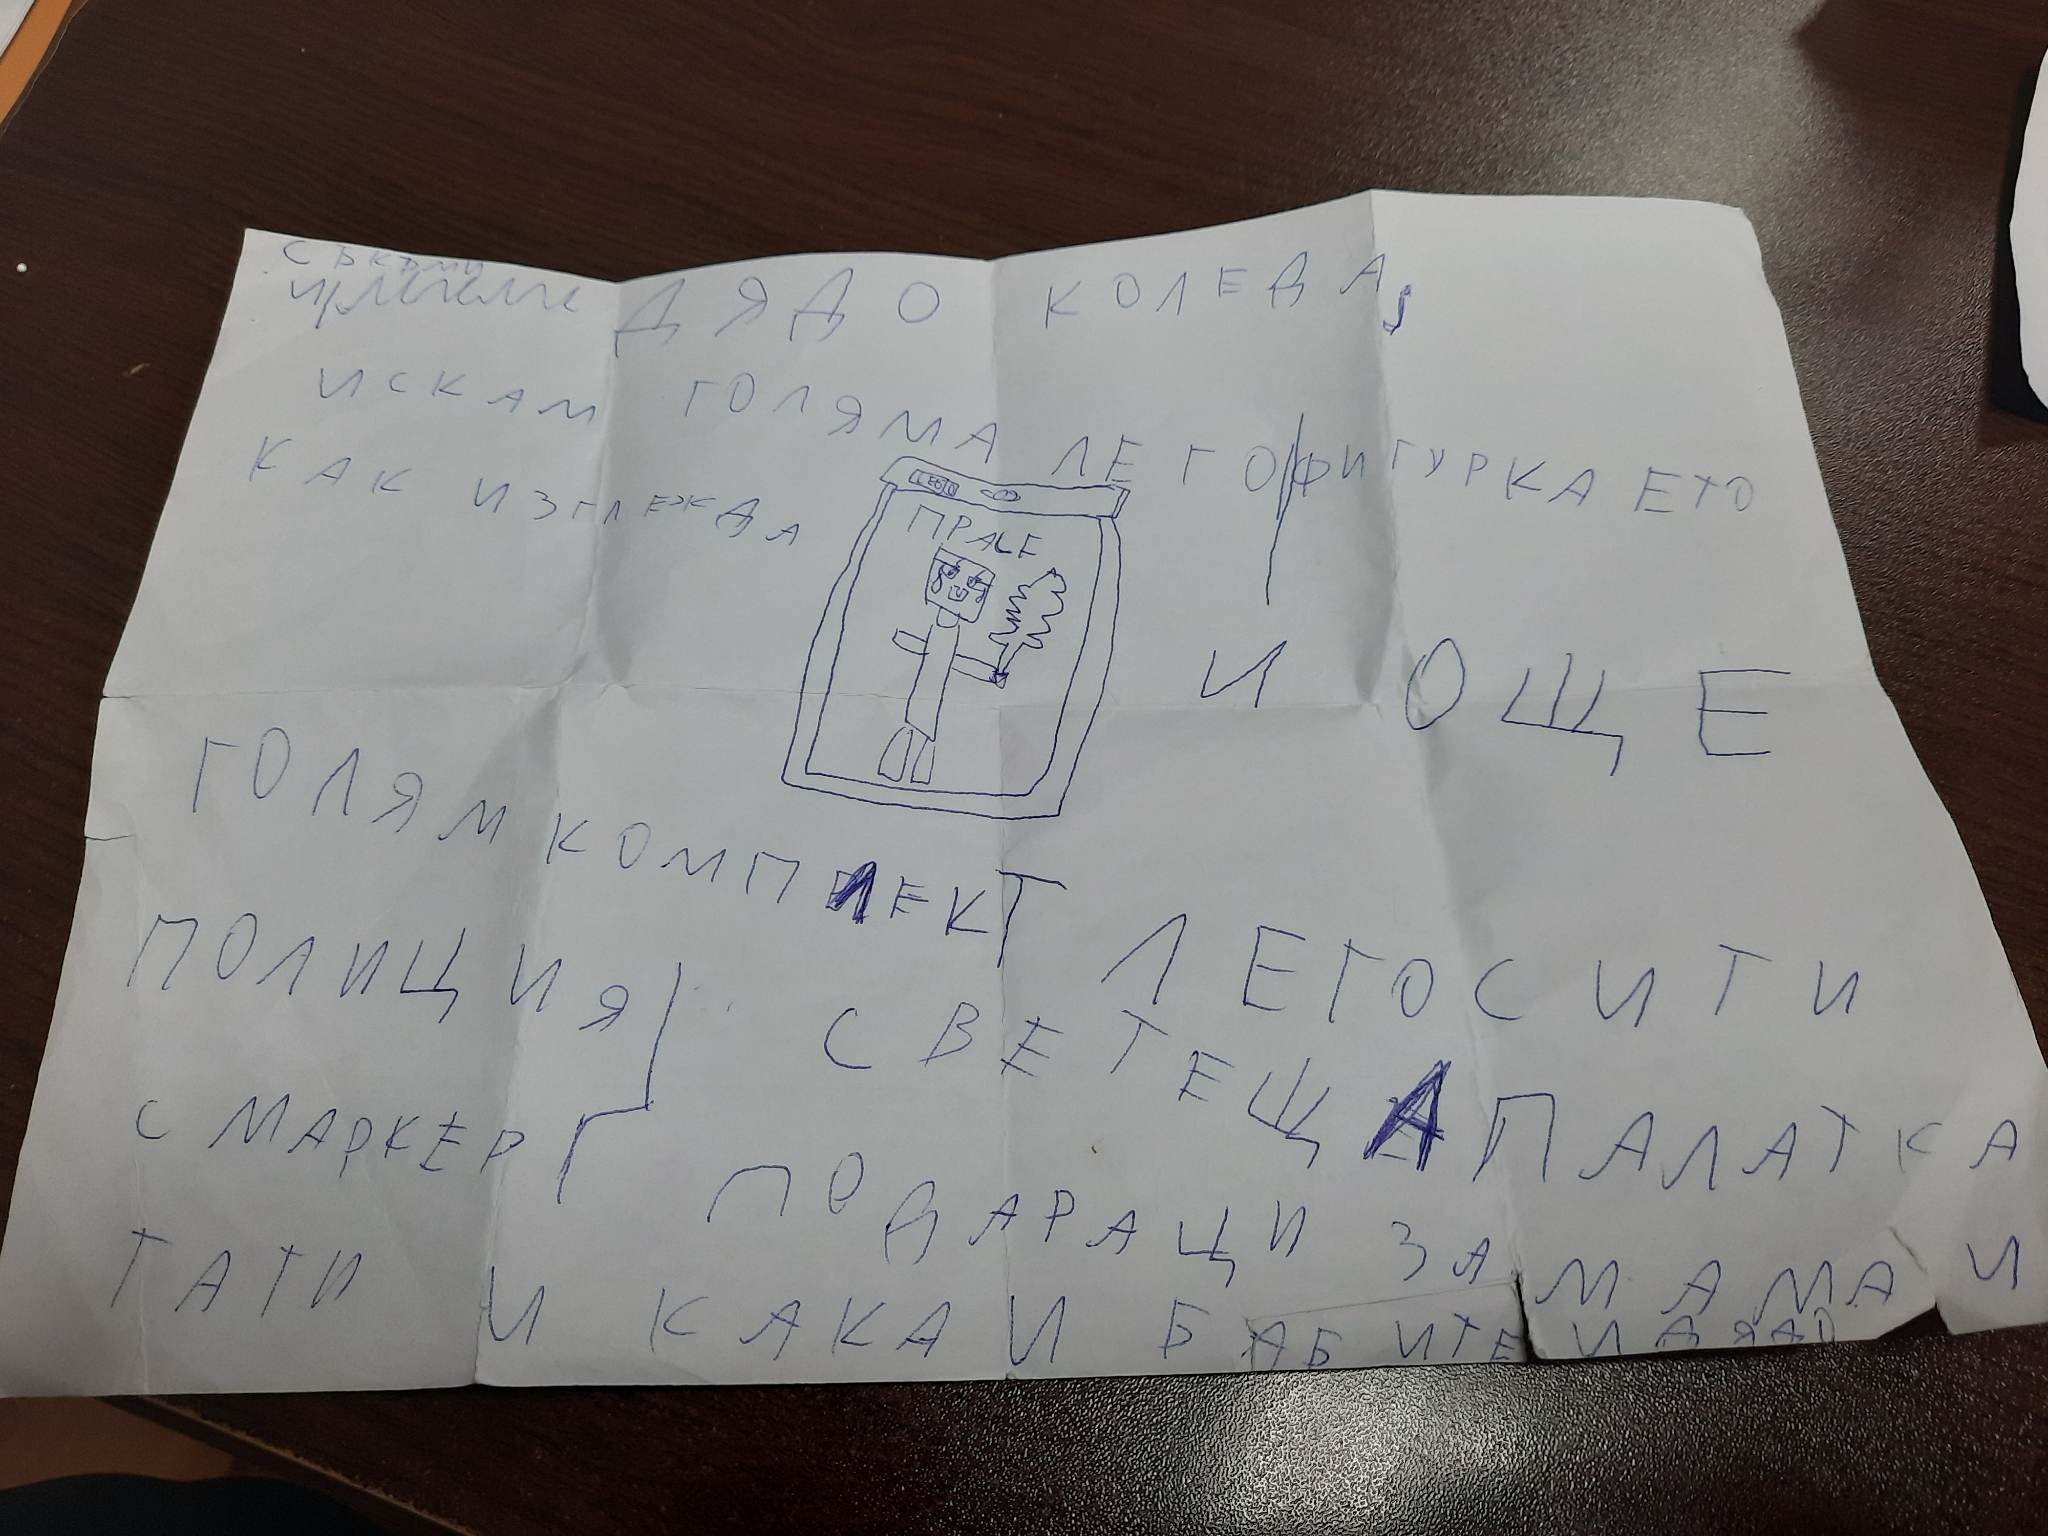 ДЯДО КОЛЕДА,
ИСКАМ ГОЛЯМА ЛЕГО ФИГУРКА ЕТО
КАК ИЗГЛЕЖДА
LEGO
ПРАСЕ
И ОЩЕ
ГОЛЯМ КОМПЛЕКТ ЛЕГО СИТИ
ПОЛИЦИЯ
СВЕТЕЩА ПАЛАТКА
С МАРКЕР
ПОДАРАЦИ ЗА МАМА И
ТАТИ И КАКА И БАБИТЕ И ДЯДО